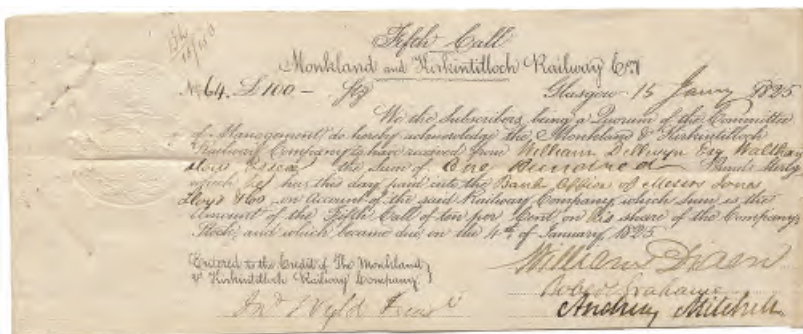 Fifth Call
Monkland and Kirkintilloch Railway Co.y
No. 64. £100 - Stg Glasgow 15 Jany 1825
We the Subscribers, being a Quorum of the Committee
of Management, do hereby acknowledge the Monkland & Kirkintilloch
Railway Company to have received from William Dillwyn Esq Waltham
Essex the Sum of One Hundred Pounds Sterlg
which he has this day paid into the Bank Office of Messrs Jones
Loyd & Co, on Account of the said Railway Company, which Sum is the
Amount of the Fifth Call of ten per Cent, on his share of the Company's
Stock, and which became due on the 4th of January, 1825
Entered to the Credit of The Monkland
& Kirkintilloch Railway Company.
William Dixon
Robt Grahame
Andrew Mitchell